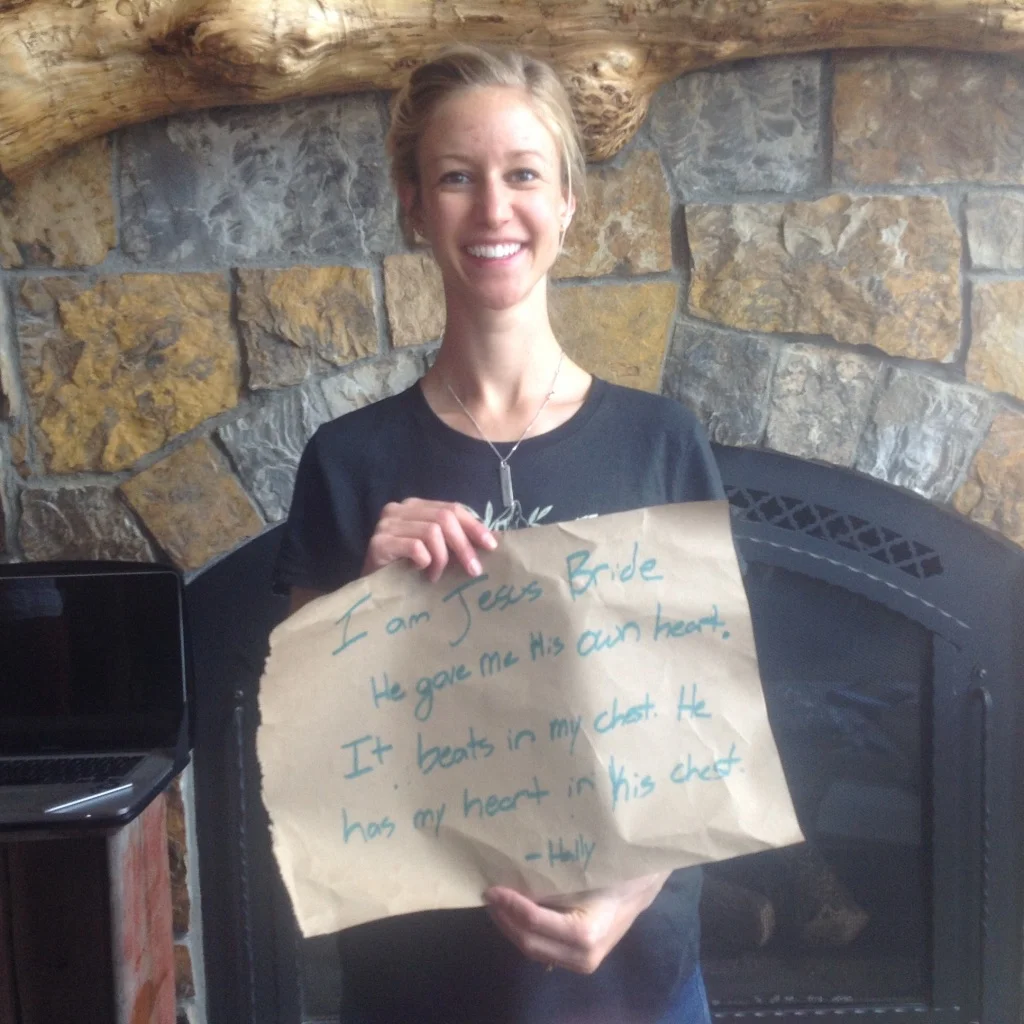 I am Jesus Bride
He gave me His own heart.
It beats in my chest. He
has my heart in His chest.
- Holly